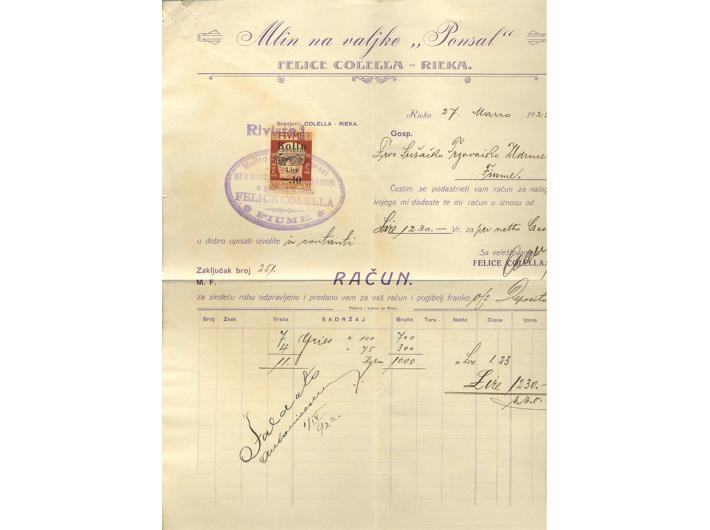 Mlin na valjke „Ponsal“
FELICE COLELLA - RIEKA.
Rieka 27 Marzo 192
Brzojavi: COLELLA - RIEKA.
Rivista
FIUME
Bollo
Lire
Gosp.
Prvo Sušačko Trgovačko Udruž
Fiume.
FELICE COLELLA
FIUME
Častim se podastrieti vam račun za nalog
kojega mi dadoste te mi račun u iznosu od
Lire 1230.— Vr. za per netto Cassa
u dobro upisati izvolite in contanti
Sa veleštovanjem
FELICE COLELLA.
Zaključak broj 251.
M. F.
RAČUN.
za sledeću robu odpravljenu i predanu vam za vaš račun i pogibelj franko p/c Deposito
Plativo i tuživo na Rieci
Broj Znak Vreća SADRŽAJ Brutto Tara Netto Ciena Iznos
7 Gries a 100 700
4 " 75 300
11. Kgrm 1000 a Lire 1.23
Lire 1230.—
S.E.O.
Saldato
1/IV 922.